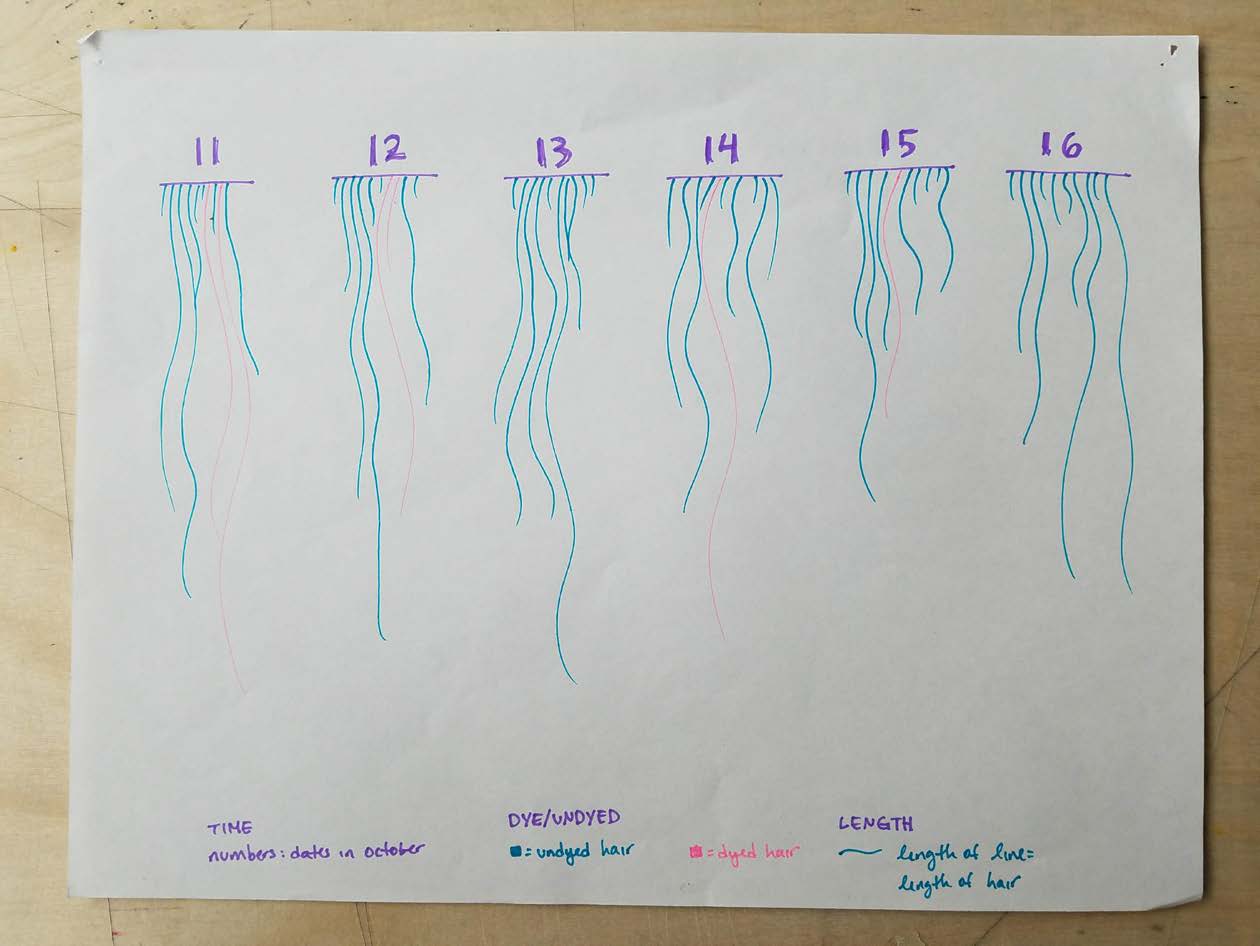 11 12 13 14 15 16
TIME
numbers: dates in october
DYE/UNDYED
= undyed hair
= dyed hair
LENGTH
length of line=
length of hair